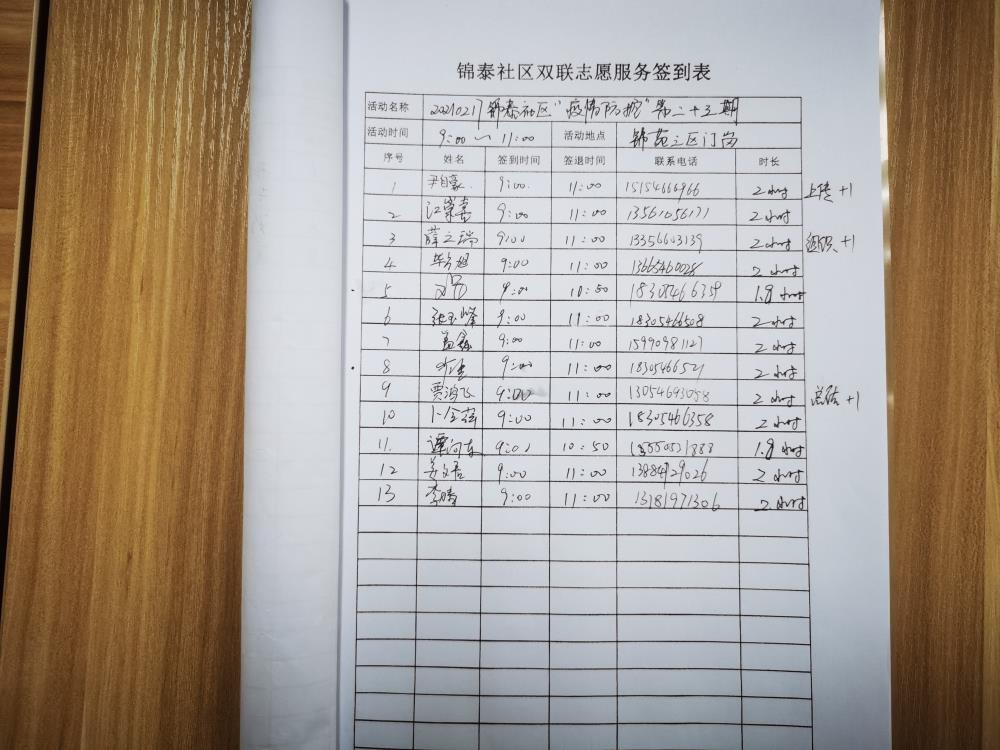 锦泰社区双联志愿服务签到表
活动名称 20210217锦泰社区"疫情防控"第二十五期
活动时间 9:00 — 11:00 活动地点 锦苑三区门岗
序号 姓名 签到时间 签退时间 联系电话 时长
1 尹自豪 9:00 11:00 15154666966 2小时 上传+1
2 江崇喜 9:00 11:00 13561056171 2小时
3 薛立瑞 9:00 11:00 13356603139 2小时 组织+1
4 9:00 11:00 13665460028 2小时
5 9:00 10:50 1.8小时
6 张玉峰 9:00 11:00 18305466508 2小时
7 9:00 11:00 15990981127 2小时
8 9:00 11:00 2小时
9 贾鸿飞 9:00 11:00 13054693058 2小时 总结+1
10 9:00 11:00 18305466358 2小时
11. 谭河东 9:01 10:50 1.8小时
12 姜文君 9:00 11:00 13884929026 2小时
13 李腾 9:00 11:00 13181971306 2小时